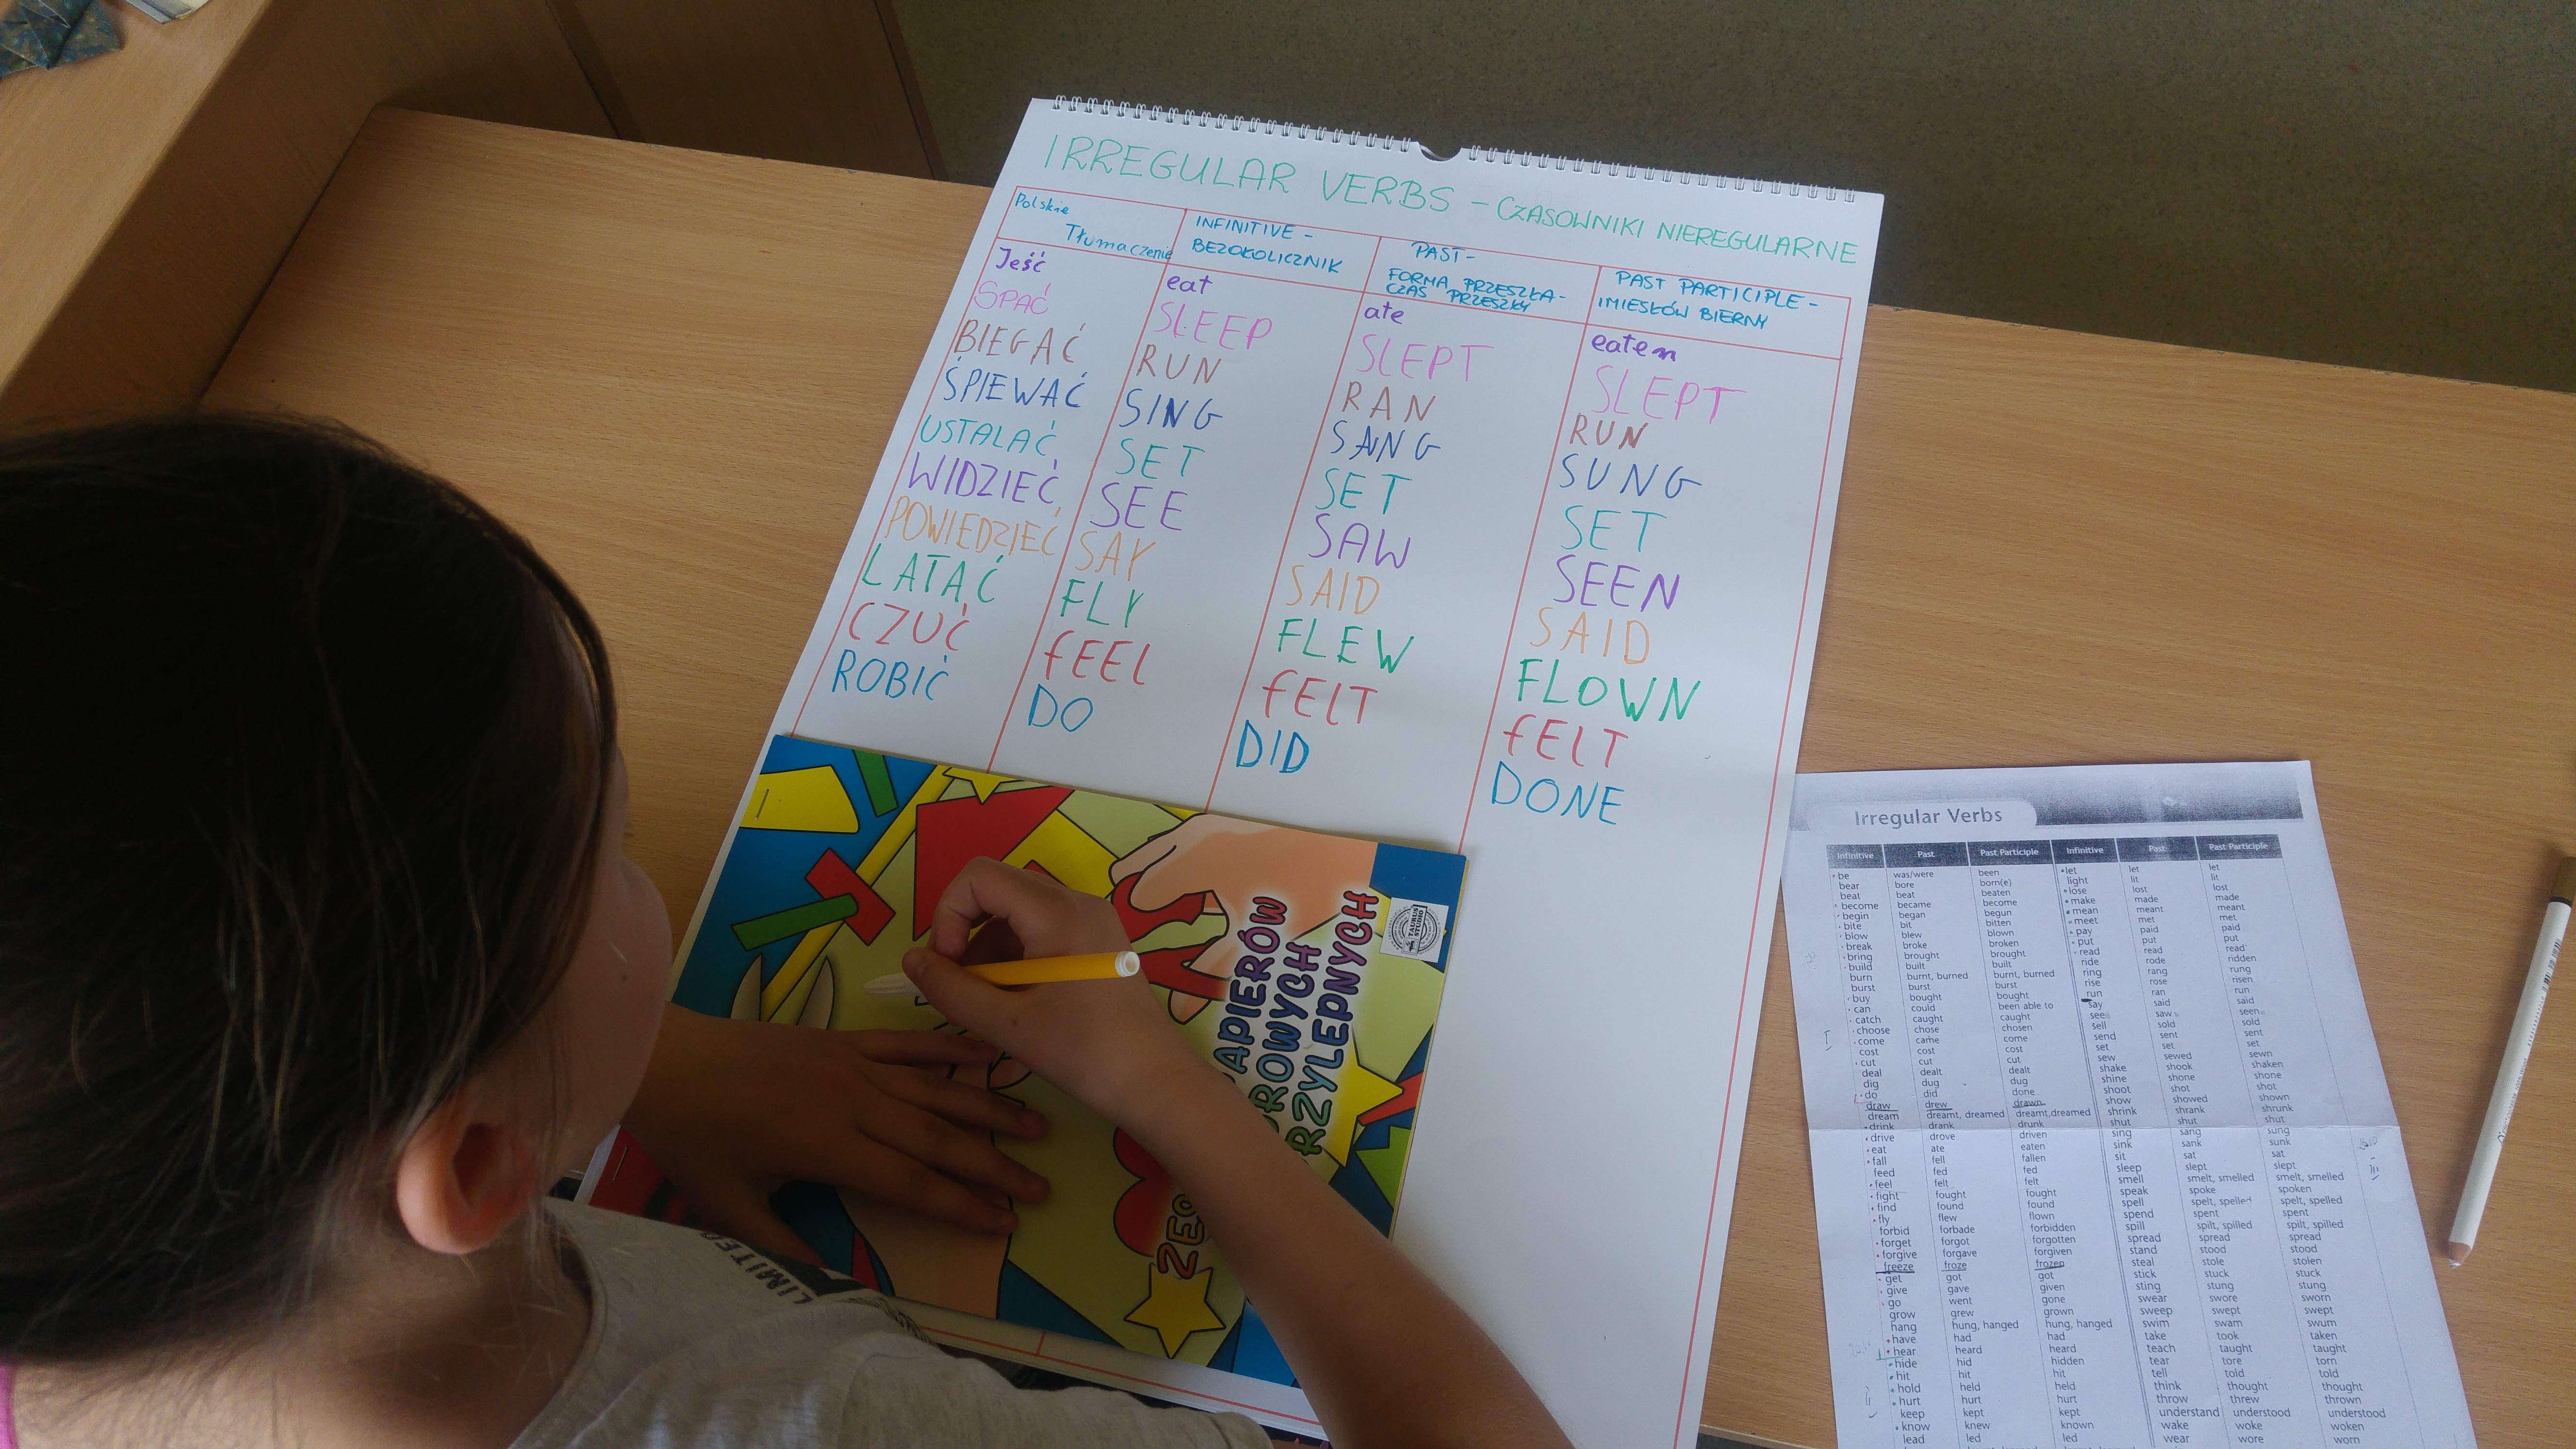 IRREGULAR VERBS - CZASOWNIKI NIEREGULARNE
Polskie Tłumaczenie
INFINITIVE - BEZOKOLICZNIK
PAST - FORMA PRZESZŁA - CZAS PRZESZŁY
PAST PARTICIPLE - IMIESŁÓW BIERNY
Jeść eat ate eaten
SPAĆ SLEEP SLEPT SLEPT
BIEGAĆ RUN RAN RUN
ŚPIEWAĆ SING SANG SUNG
USTALAĆ SET SET SET
WIDZIEĆ SEE SAW SEEN
POWIEDZIEĆ SAY SAID SAID
LATAĆ FLY FLEW FLOWN
CZUĆ fEEL fELT fELT
ROBIĆ DO DID DONE
PRZYLEPNYCH
TAURUS STUDIO
LIMITE
Irregular Verbs
Infinitive Past Past Participle Infinitive Past Past Participle
be was/were been let let let
bear bore born(e) light lit lit
beat beat beaten lose lost lost
become became become make made made
begin began begun mean meant meant
bite bit bitten meet met met
blow blew blown pay paid paid
break broke broken put put put
bring brought brought read read read
build built built ride rode ridden
burn burnt, burned burnt, burned ring rang rung
burst burst burst rise rose risen
buy bought bought run ran run
can could been able to say said said
catch caught caught see saw seen
choose chose chosen sell sold sold
come came come send sent sent
cost cost cost set set set
cut cut cut sew sewed sewn
deal dealt dealt shake shook shaken
dig dug dug shine shone shone
do did done shoot shot shot
draw drew drawn show showed shown
dream dreamt, dreamed dreamt,dreamed shrink shrank shrunk
drink drank drunk shut shut shut
drive drove driven sing sang sung
eat ate eaten sink sank sunk
fall fell fallen sit sat sat
feed fed fed sleep slept slept
feel felt felt smell smelt, smelled smelt, smelled
fight fought fought speak spoke spoken
find found found spell spelt, spelled spelt, spelled
fly flew flown spend spent spent
forbid forbade forbidden spill spilt, spilled spilt, spilled
forget forgot forgotten spread spread spread
forgive forgave forgiven stand stood stood
freeze froze frozen steal stole stolen
get got got stick stuck stuck
give gave given sting stung stung
go went gone swear swore sworn
grow grew grown sweep swept swept
hang hung, hanged hung, hanged swim swam swum
have had had take took taken
hear heard heard teach taught taught
hide hid hidden tear tore torn
hit hit hit tell told told
hold held held think thought thought
hurt hurt hurt throw threw thrown
keep kept kept understand understood understood
know knew known wake woke woken
lead led led wear wore worn